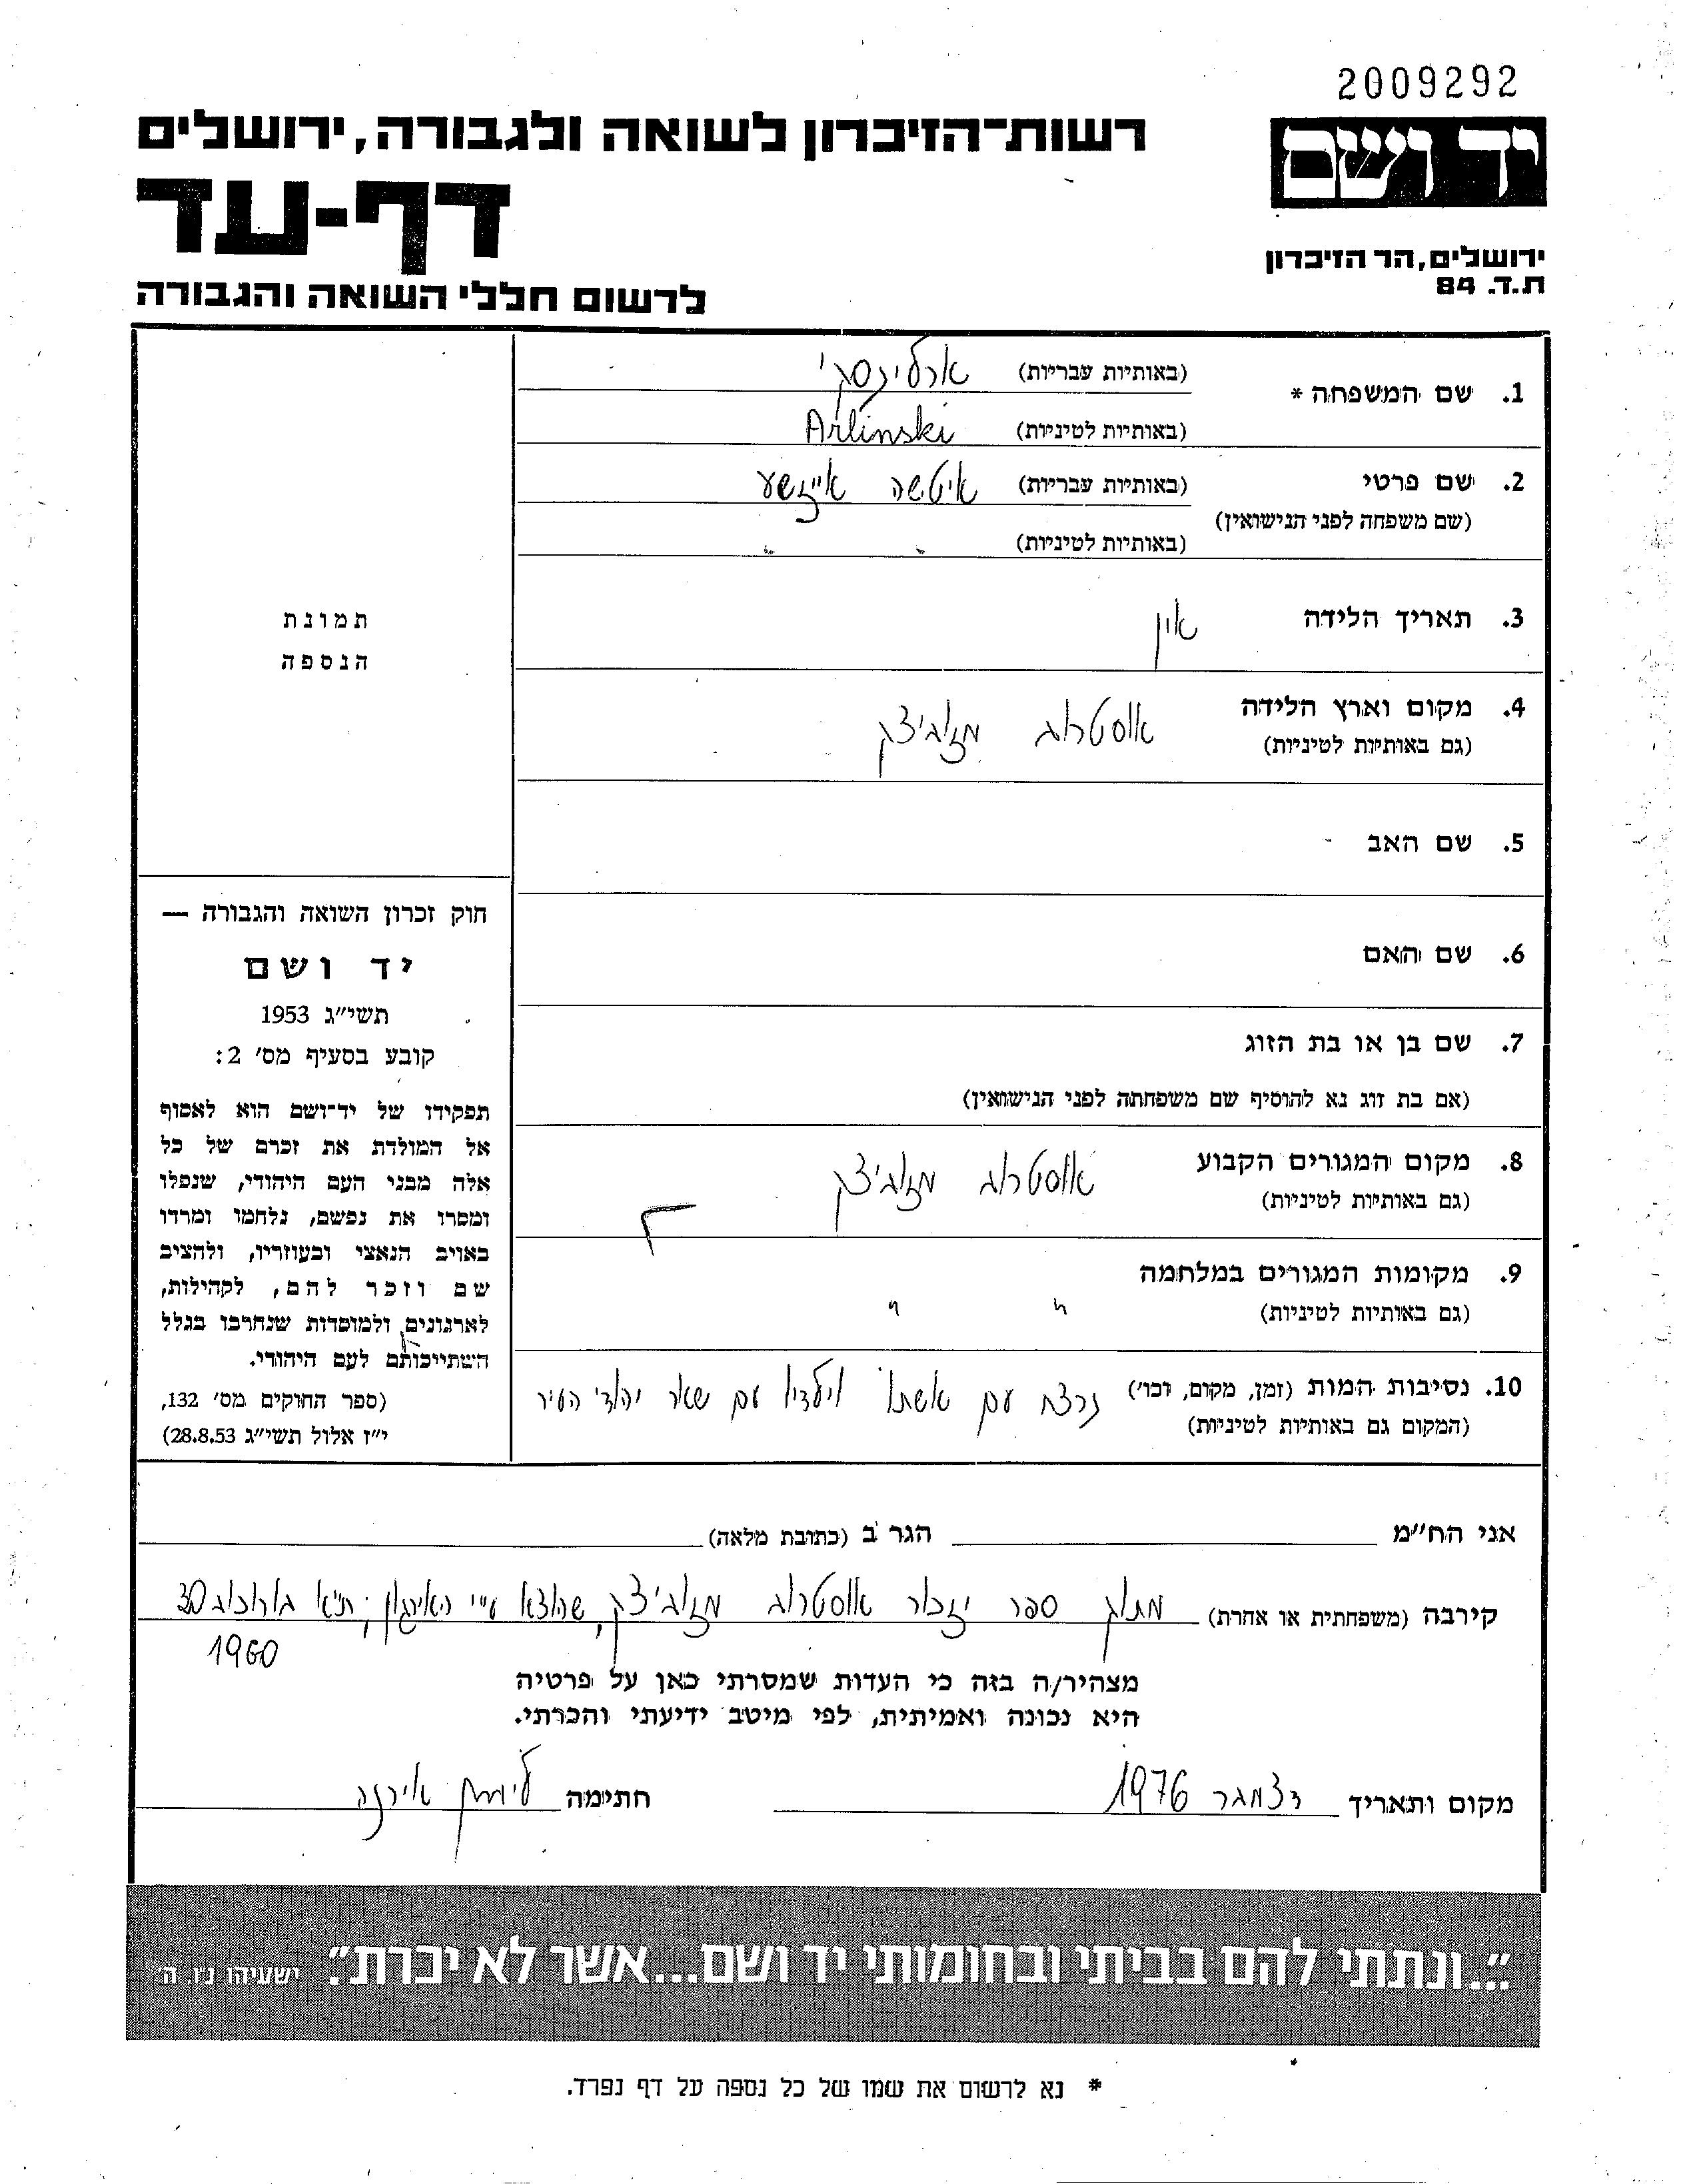 2009292
יד ושם
רשות־הזיכרון לשואה ולגבורה, ירושלים
דף-עד
ירושלים, הר הזיכרון
ת.ד. 84
לרשום חללי השואה והגבורה
1. שם המשפחה * (באותיות עבריות) ארלינסקי
(באותיות לטיניות) Arlinski
2. שם פרטי (באותיות עבריות) איטשה אייזשע
(שם משפחה לפני הנישואין)
(באותיות לטיניות) " "
3. תאריך הלידה אין
4. מקום וארץ הלידה אוסטרוב מזוביצק
(גם באותיות לטיניות)
5. שם האב -
6. שם האם
7. שם בן או בת הזוג
(אם בת זוג נא להוסיף שם משפחתה לפני הנישואין)
8. מקום המגורים הקבוע אוסטרוב מזוביצק
(גם באותיות לטיניות)
9. מקומות המגורים במלחמה
(גם באותיות לטיניות) " "
10. נסיבות המות (זמן, מקום, וכו') נרצח עם אשתו וילדיו עם שאר יהודי העיר
(המקום גם באותיות לטיניות)
תמונת
הנספה
חוק זכרון השואה והגבורה —
יד ושם
תשי"ג 1953
קובע בסעיף מס' 2:
תפקידו של יד־ושם הוא לאסוף
אל המולדת את זכרם של כל
אלה מבני העם היהודי, שנפלו
ומסרו את נפשם, נלחמו ומרדו
באויב הנאצי ובעוזריו, ולהציב
שם וזכר להם, לקהילות,
לארגונים ולמוסדות שנחרבו בגלל
השתייכותם לעם היהודי.
(ספר החוקים מס' 132,
י"ז אלול תשי"ג 28.8.53)
אני הח"מ הגר ב (כתובת מלאה)
קירבה (משפחתית או אחרת) מתוך ספר יזכור אוסטרוב מזוביצק, שהוצא ע"י האירגון, ת"א
1960
מצהיר/ה בזה כי העדות שמסרתי כאן על פרטיה
היא נכונה ואמיתית, לפי מיטב ידיעתי והכרתי.
מקום ותאריך דצמבר 1976 חתימה אירנה
"...ונתתי להם בביתי ובחומותי יד ושם...אשר לא יכרת". ישעיהו נ"ו, ה'
* נא לרשום את שמו של כל נספה על דף נפרד.